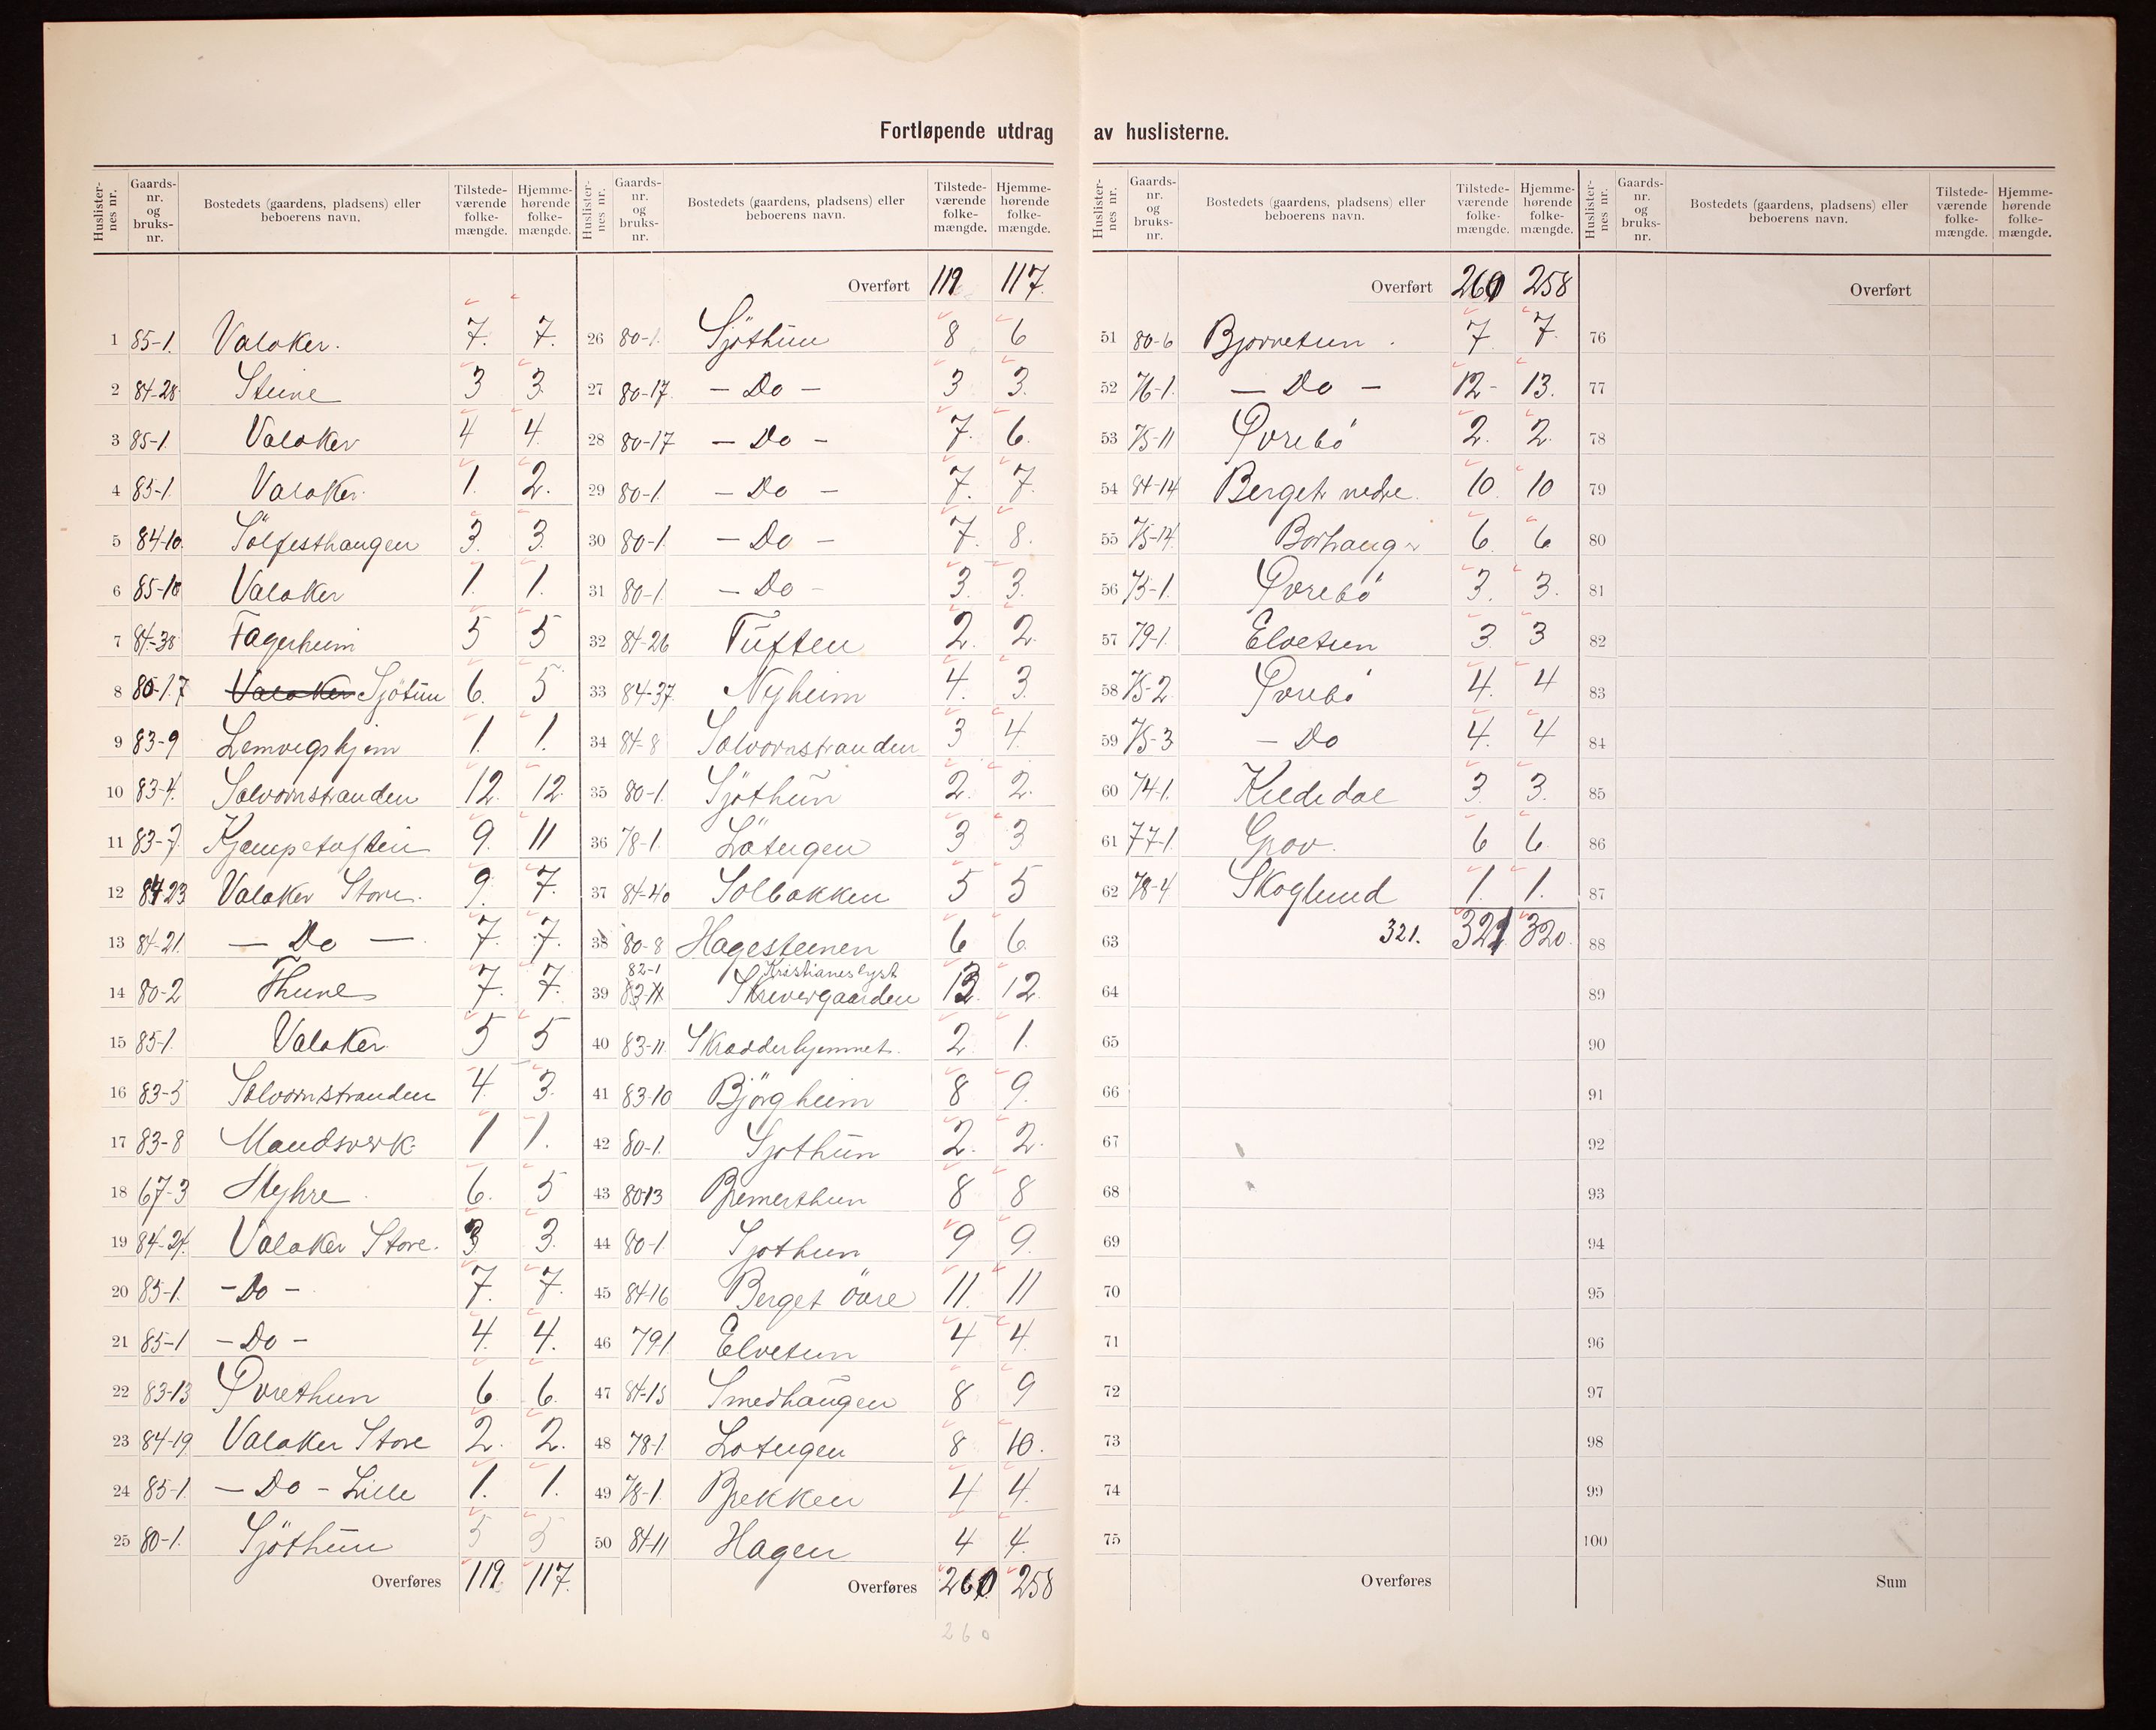 Fortløpende utdrag av huslisterne.
Huslister-nes nr. Gaards-nr. og bruks-nr. Bostedets (gaardens, pladsens) eller beboerens navn. Tilstede-værende folke-mængde. Hjemme-hørende folke-mængde.
1 85-1. Valaker. 7. 7.
2 84-28 Steine 3 3
3 85-1 Valaker 4 4.
4 85-1. Valaker. 1. 2.
5 84-10. Sölfesthaugen 3. 3.
6 85-10 Valaker 1. 1.
7 84-38 Fagerheim 5 5
8 80-17 Valaker Sjötun 6. 5
9 83-9 Lemvigshjem 1. 1.
10 83-4. Solvornstranden 12. 12.
11 83-7. Kjempetoften 9. 11
12 84-23 Valaker Store. 9. 7.
13 84-21. — Do — 7. 7.
14 80-2 Thune 7. 7.
15 85-1. Valaker. 5 5
16 83-5 Solvornstranden 4. 3.
17 83-8 Mandsverk 1 1.
18 67-3 Myhre 6. 5
19 84-24. Valaker Store. 3 3.
20 85-1. - Do - 7. 7.
21 85-1 - Do - 4. 4.
22 83-13 Øvrethun 6 6.
23 84-19. Valaker Store 2. 2.
24 85-1. — Do - Lille 1. 1.
25 80-1. Sjöthun 5 5
Overføres 119. 117.
Huslister-nes nr. Gaards-nr. og bruks-nr. Bostedets (gaardens, pladsens) eller beboerens navn. Tilstede-værende folke-mængde. Hjemme-hørende folke-mængde.
Overført 119 117.
26 80-1. Sjöthun 8 6
27 80-17. — Do — 3 3.
28 80-17 — Do - 7. 6.
29 80-1. — Do — 7. 7.
30 80-1. — Do — 7. 8.
31 80-1. — Do - 3. 3.
32 84-26 Tuften 2. 2.
33 84-37. Nyheim 4. 3.
34 84-8 Solvornstranden 3 4.
35 80-1. Sjöthun 2. 2.
36 78-1. Lötugen 3 3
37 84-40 Solbakken 5 5
38 80-8 Hagesteinen 6 6.
82-1 Kristianeslyst
39 83-11 Skrivergaarden 13. 12.
40 83-11. Skradderhjemmet. 2 1.
41 83-10 Björgheim 8 9.
42 80-1. Sjothun 2. 2.
43 80-13 Bremerthun 8 8
44 80-1 Sjothun 9 9.
45 84-16 Berget övre 11. 11
46 79-1 Elvetun 4 4.
47 84-15 Smedhaugen 8 9
48 78-1. Lotugen 8 10.
49 78-1. Brekken 4 4.
50 84-11 Hagen 4 4.
Overføres 260. 258
260
Huslister-nes nr. Gaards-nr. og bruks-nr. Bostedets (gaardens, pladsens) eller beboerens navn. Tilstede-værende folke-mængde. Hjemme-hørende folke-mængde.
Overført 260 258
51 80-6 Bjornetun. 7 7.
52 76-1. — Do — 12- 13.
53 75-11 Øvrebö 2. 2.
54 84-14 Berget nedre. 10. 10
55 75-14. Borhaug 6. 6
56 75-1. Øvrebö 3. 3.
57 79-1. Elvetun 3. 3
58 75-2. Øvrebö 4. 4
59 75-3 - Do 4. 4
60 74-1. Kildedal 3. 3.
61 77-1. Grov. 6 6.
62 78-4 Skoglund 1. 1.
63 321. 321 320.
64
65
66
67
68
69
70
71
72
73
74
75
Overføres
Huslister-nes nr. Gaards-nr. og bruks-nr. Bostedets (gaardens, pladsens) eller beboerens navn. Tilstede-værende folke-mængde. Hjemme-hørende folke-mængde.
Overført
76
77
78
79
80
81
82
83
84
85
86
87
88
89
90
91
92
93
94
95
96
97
98
99
100
Sum